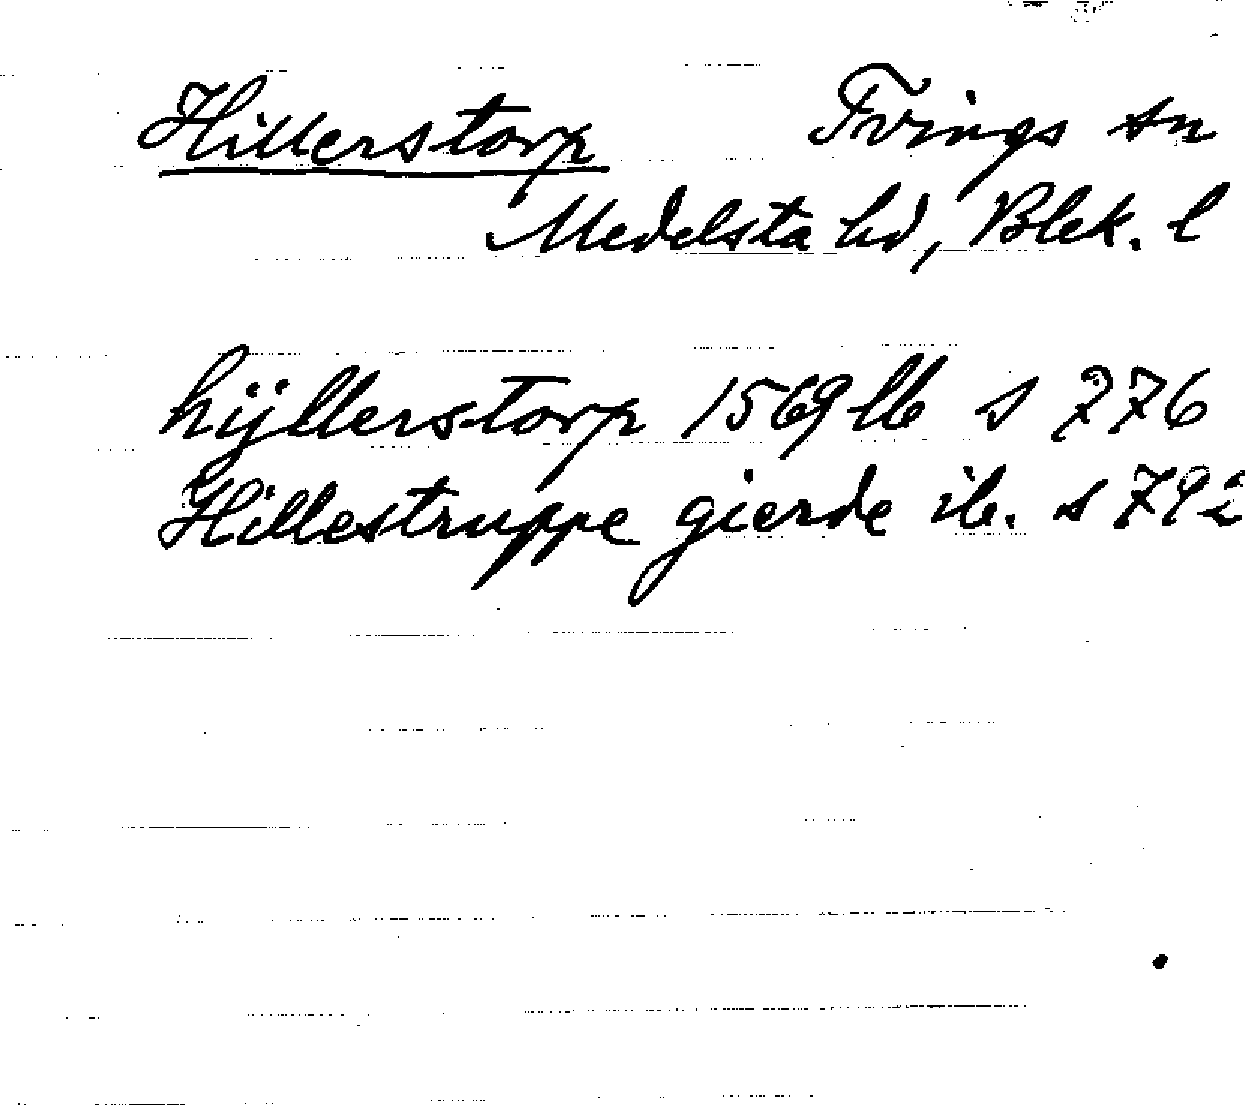 Hillerstorp Tvings sn
Medelsta hd, Blek. l
hÿllerstorp 1569 lb s 776
Hillestruppe gierde ib. s 792